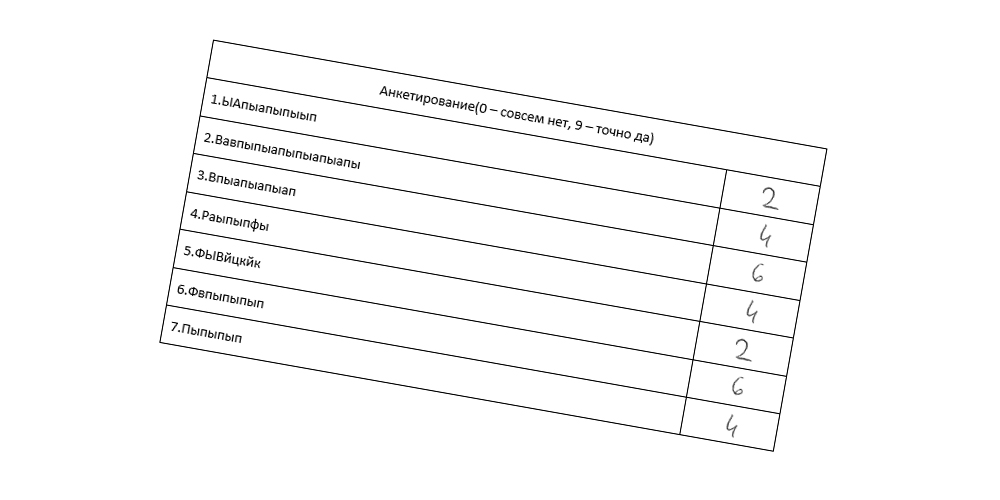 Анкетирование(0 – совсем нет, 9 – точно да)
1.ЫАпыапыпыып 2
2.Вавпыпыапыпыапыапы 4
3.Впыапыапыап 6
4.Раыпыпфы 4
5.ФЫВйцкйк 2
6.Фвпыпыпып 6
7.Пыпыпып 4